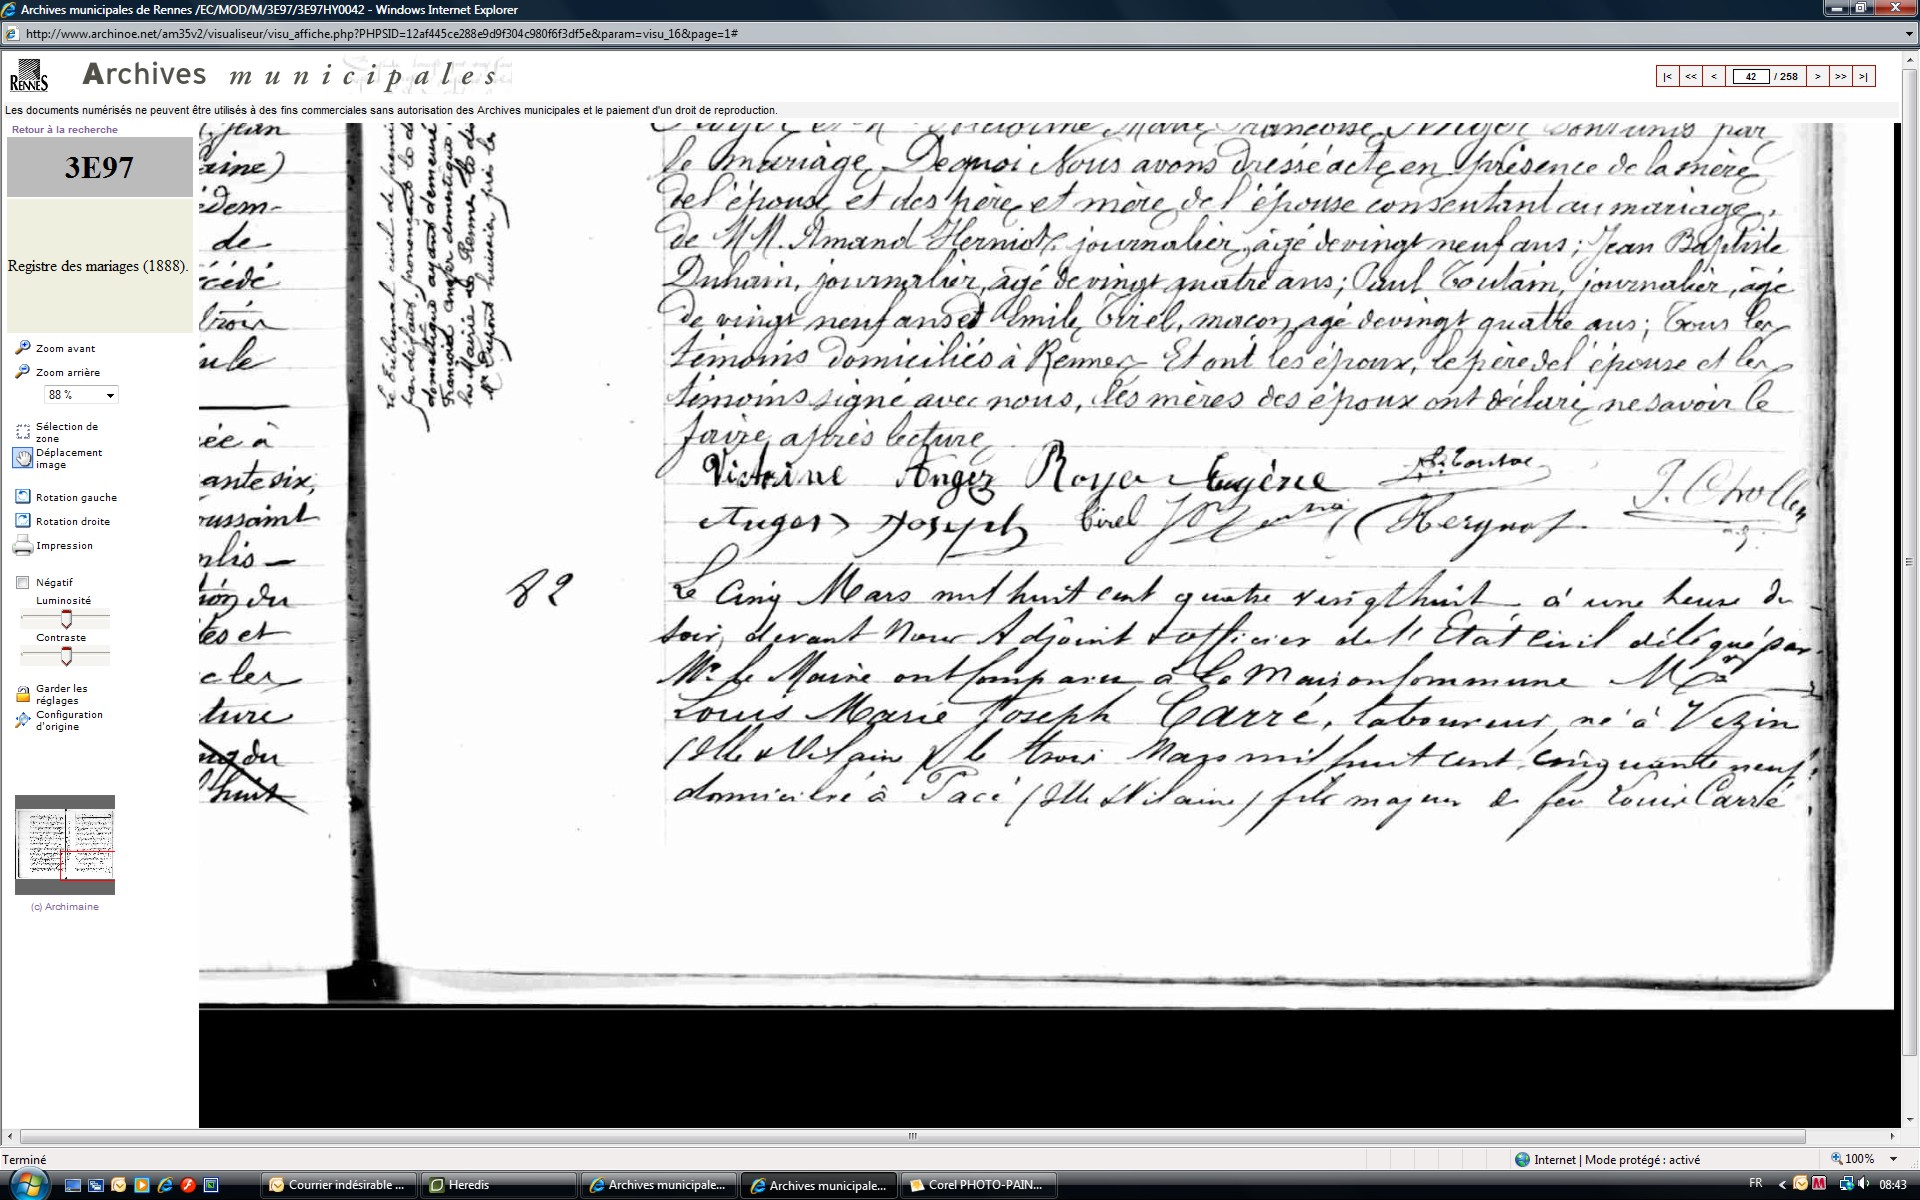 Archives municipales de Rennes /EC/MOD/M/3E97/3E97HY0042 - Windows Internet Explorer
http://www.archinoe.net/am35v2/visualiseur/visu_affiche.php?PHPSID=12af445ce288e9d9f304c980f6f3df5e&param=visu_16&page=1#
RENNES Archives municipales
|< << < 42 / 258 > >> >|
Les documents numérisés ne peuvent être utilisés à des fins commerciales sans autorisation des Archives municipales et le paiement d'un droit de reproduction.
Retour à la recherche
3E97
Registre des mariages (1888).
Zoom avant
Zoom arrière
88 %
Sélection de
zone
Déplacement
image
Rotation gauche
Rotation droite
Impression
Négatif
Luminosité
Contraste
Garder les
réglages
Configuration
d'origine
(c) Archimaine
Jean
laine)
édem-
de
écédé
trois
ée à
ante six,
oussaint
ton du
tes et
c les
ture
huit
le tribunal civil de
par défaut, prononçant le
domestique ayant demeuré
François Anger domestique
la Mairie de Rennes
Mr Dupont huissier près le
Marie Françoise Anger sont unis par
le mariage, De quoi Nous avons dressé acte, en présence de la mère
de l'époux et des père et mère de l'épouse consentant au mariage,
de MM. Amand Herniote, journalier, âgé de vingt neuf ans ; Jean Baptiste
Duhain, journalier, âgé de vingt quatre ans ; Paul Toutain, journalier, âgé
de vingt neuf ans et Emile Tirel, maçon, agé de vingt quatre ans ; Tous les
témoins domiciliés à Rennes Et ont les époux, le père de l'épouse et les
témoins signé avec nous, les mères des époux ont déclaré ne savoir le
faire, après lecture
Victoire Anger Royer Eugène
Auger Joseph Tirel
82
Le cinq Mars mil huit cent quatre vingt huit à une heure du
soir, devant Nous Adjoint & officier de l'Etat civil délégué par
Mr le Maire ont Comparu à la Maison Commune
Louis Marie Joseph Carré, laboureur, né à Vezin
(Ille & Vilaine) le trois Mars mil huit cent cinquante neuf,
domicilié à Pacé (Ille & Vilaine) fils majeur de feu Louis Carré,
Terminé
Internet | Mode protégé : activé
100%
Courrier indésirable ...
Heredis
Archives municipale...
Archives municipale...
Corel PHOTO-PAIN...
FR
08:43